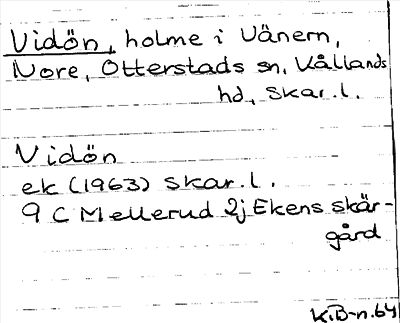 Vidön, holme i Vänern,
Nore, Otterstads sn, Kållands
hd, Skar.l.
Vidön
ek (1963) Skar.l.
9 C Mellerud 2j Ekens skär-
gård
K.B-n. 64